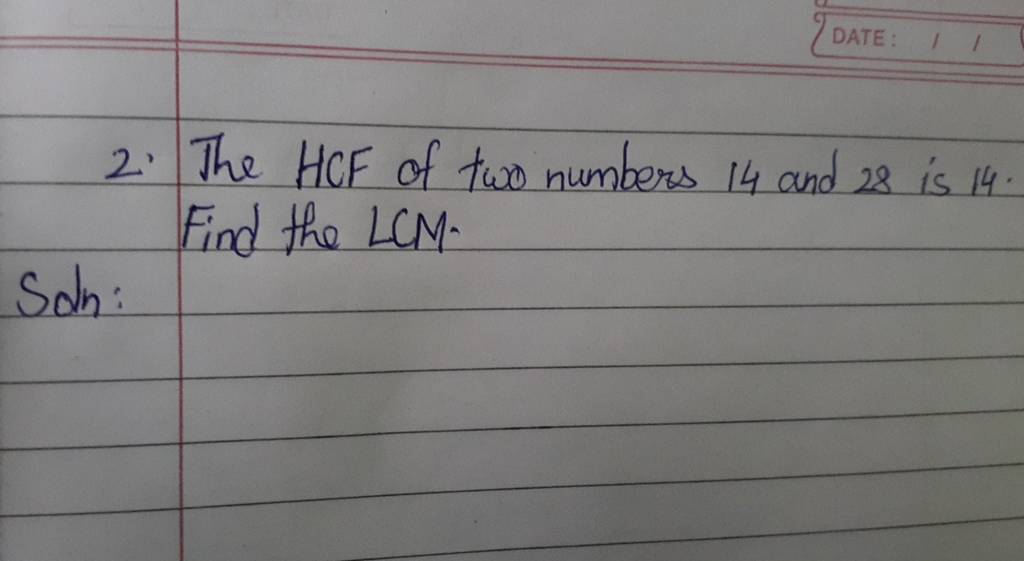 DATE: / /
2. The HCF of two numbers 14 and 28 is 14.
Find the LCM.
Soln: